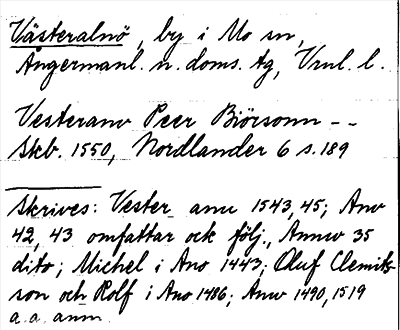 Västeralnö, by i Mo sn,
Ångermanl. n. doms. tg, Vnl. l.
Vesteranv Peer Biörsonn - -
Skb. 1550, Nordlander 6 s. 189
Skrives: Vester_anu 1543, 45; Anv
42, 43 omfattar ock följ., Annv 35
dito; Michel i Ano 1443; Oluf Clemits-
son och Rolf i Ano 1486; Anv 1490, 1519
a. a. anm.